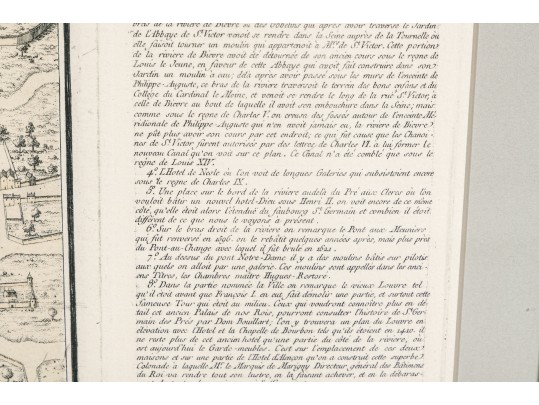 bras de la riviere de Bievre ou des Gobelins qui apres avoir traversé le Jardin
de L'Abbaye de St. Victor venoit se rendre dans la Seine auprès de la Tournelle ou
elle faisoit tourner un moulin qui appartenoit à Mrs. de St. Victor. Cette portion
de la riviere de Bievre avoit été détournée de son ancien cours sous le regne de
Louis le Jeune, en faveur de cette Abbaye qui avoit fait construire dans son
Jardin un moulin a eau; delà apres avoir passé sous les murs de l'enceinte de
Philippe-Auguste, ce bras de la riviere traversoit le terrein des bons enfans et du
College du Cardinal le Moine, et venoit se rendre le long de la rue St. Victor, à
celle de Bievre au bout de laquelle il avoit son embouchure dans la Seine; mais
comme sous le regne de Charles V. on creusa des fossés autour de l'enceinte Mé-
ridionale de Philippe-Auguste qui n'en avoit jamais eu, la riviere de Bievre
ne pût plus avoir son cours par cet endroit; ce qui fut cause que les Chanoi-
nes de St. Victor fûrent autorisés par des lettres de Charles VI. à lui former le
nouveau Canal qu'on voit sur ce plan. Ce Canal n'a été comblé que sous le
regne de Louis XIV.
4.° L'Hotel de Nesle où l'on voit de longues Galeries qui subsistoient encore
sous le regne de Charles IX.
5.° Une place sur le bord de la riviere audelà du Pré aux Clercs où l'on
vouloit bâtir un nouvel hôtel-Dieu sous Henri II. on voit encore de ce même
côté, qu'elle étoit alors l'etendue du fauxbourg St. Germain et combien il étoit
différent de ce que nous le voyons à présent.
6.° Sur le bras droit de la riviere on remarque le Pont aux Meuniers
qui fut renversé en 1596. on le rebâtit quelques années après, mais plus près
du Pont-au-Change avec lequel il fut brulé en 1621.
7.° Au dessus du pont Notre-Dame il y a des moulins bâtis sur pilotis
aux quels on alloit par une galerie. Ces moulins sont appellés dans les anci-
ens Titres, les Chambres maitre Hugues-Restoré.
8.° Dans la partie nommée la Ville on remarque le vieux Louvre tel
qu'il étoit avant que François I. en eut fait démolir une partie, et surtout cette
fameuse Tour qui étoit au milieu. Ceux qui voudront connoitre plus en dé-
tail cet ancien Palais de nos Rois, pourront consulter l'histoire de St. Ger-
main des Prés par Dom Bouillart; l'on y trouvera un plan du Louvre en
elévation avec l'Hotel et la Chapelle de Bourbon tels qu'ils étoient en 1410. il
ne reste plus de cet ancien hôtel qu'une partie du côté de la riviere, où
est aujourd'hui le Garde-meubles. C'est sur l'emplacement de ces deux
maisons et sur une partie de l'Hotel d'Alençon qu'on a construit cette superbe
Colonade à laquelle Mr. le Marquis de Marigny Directeur général des Bâtimens
du Roi va rendre tout son lustre, en la faisant achever, et en la débaras-